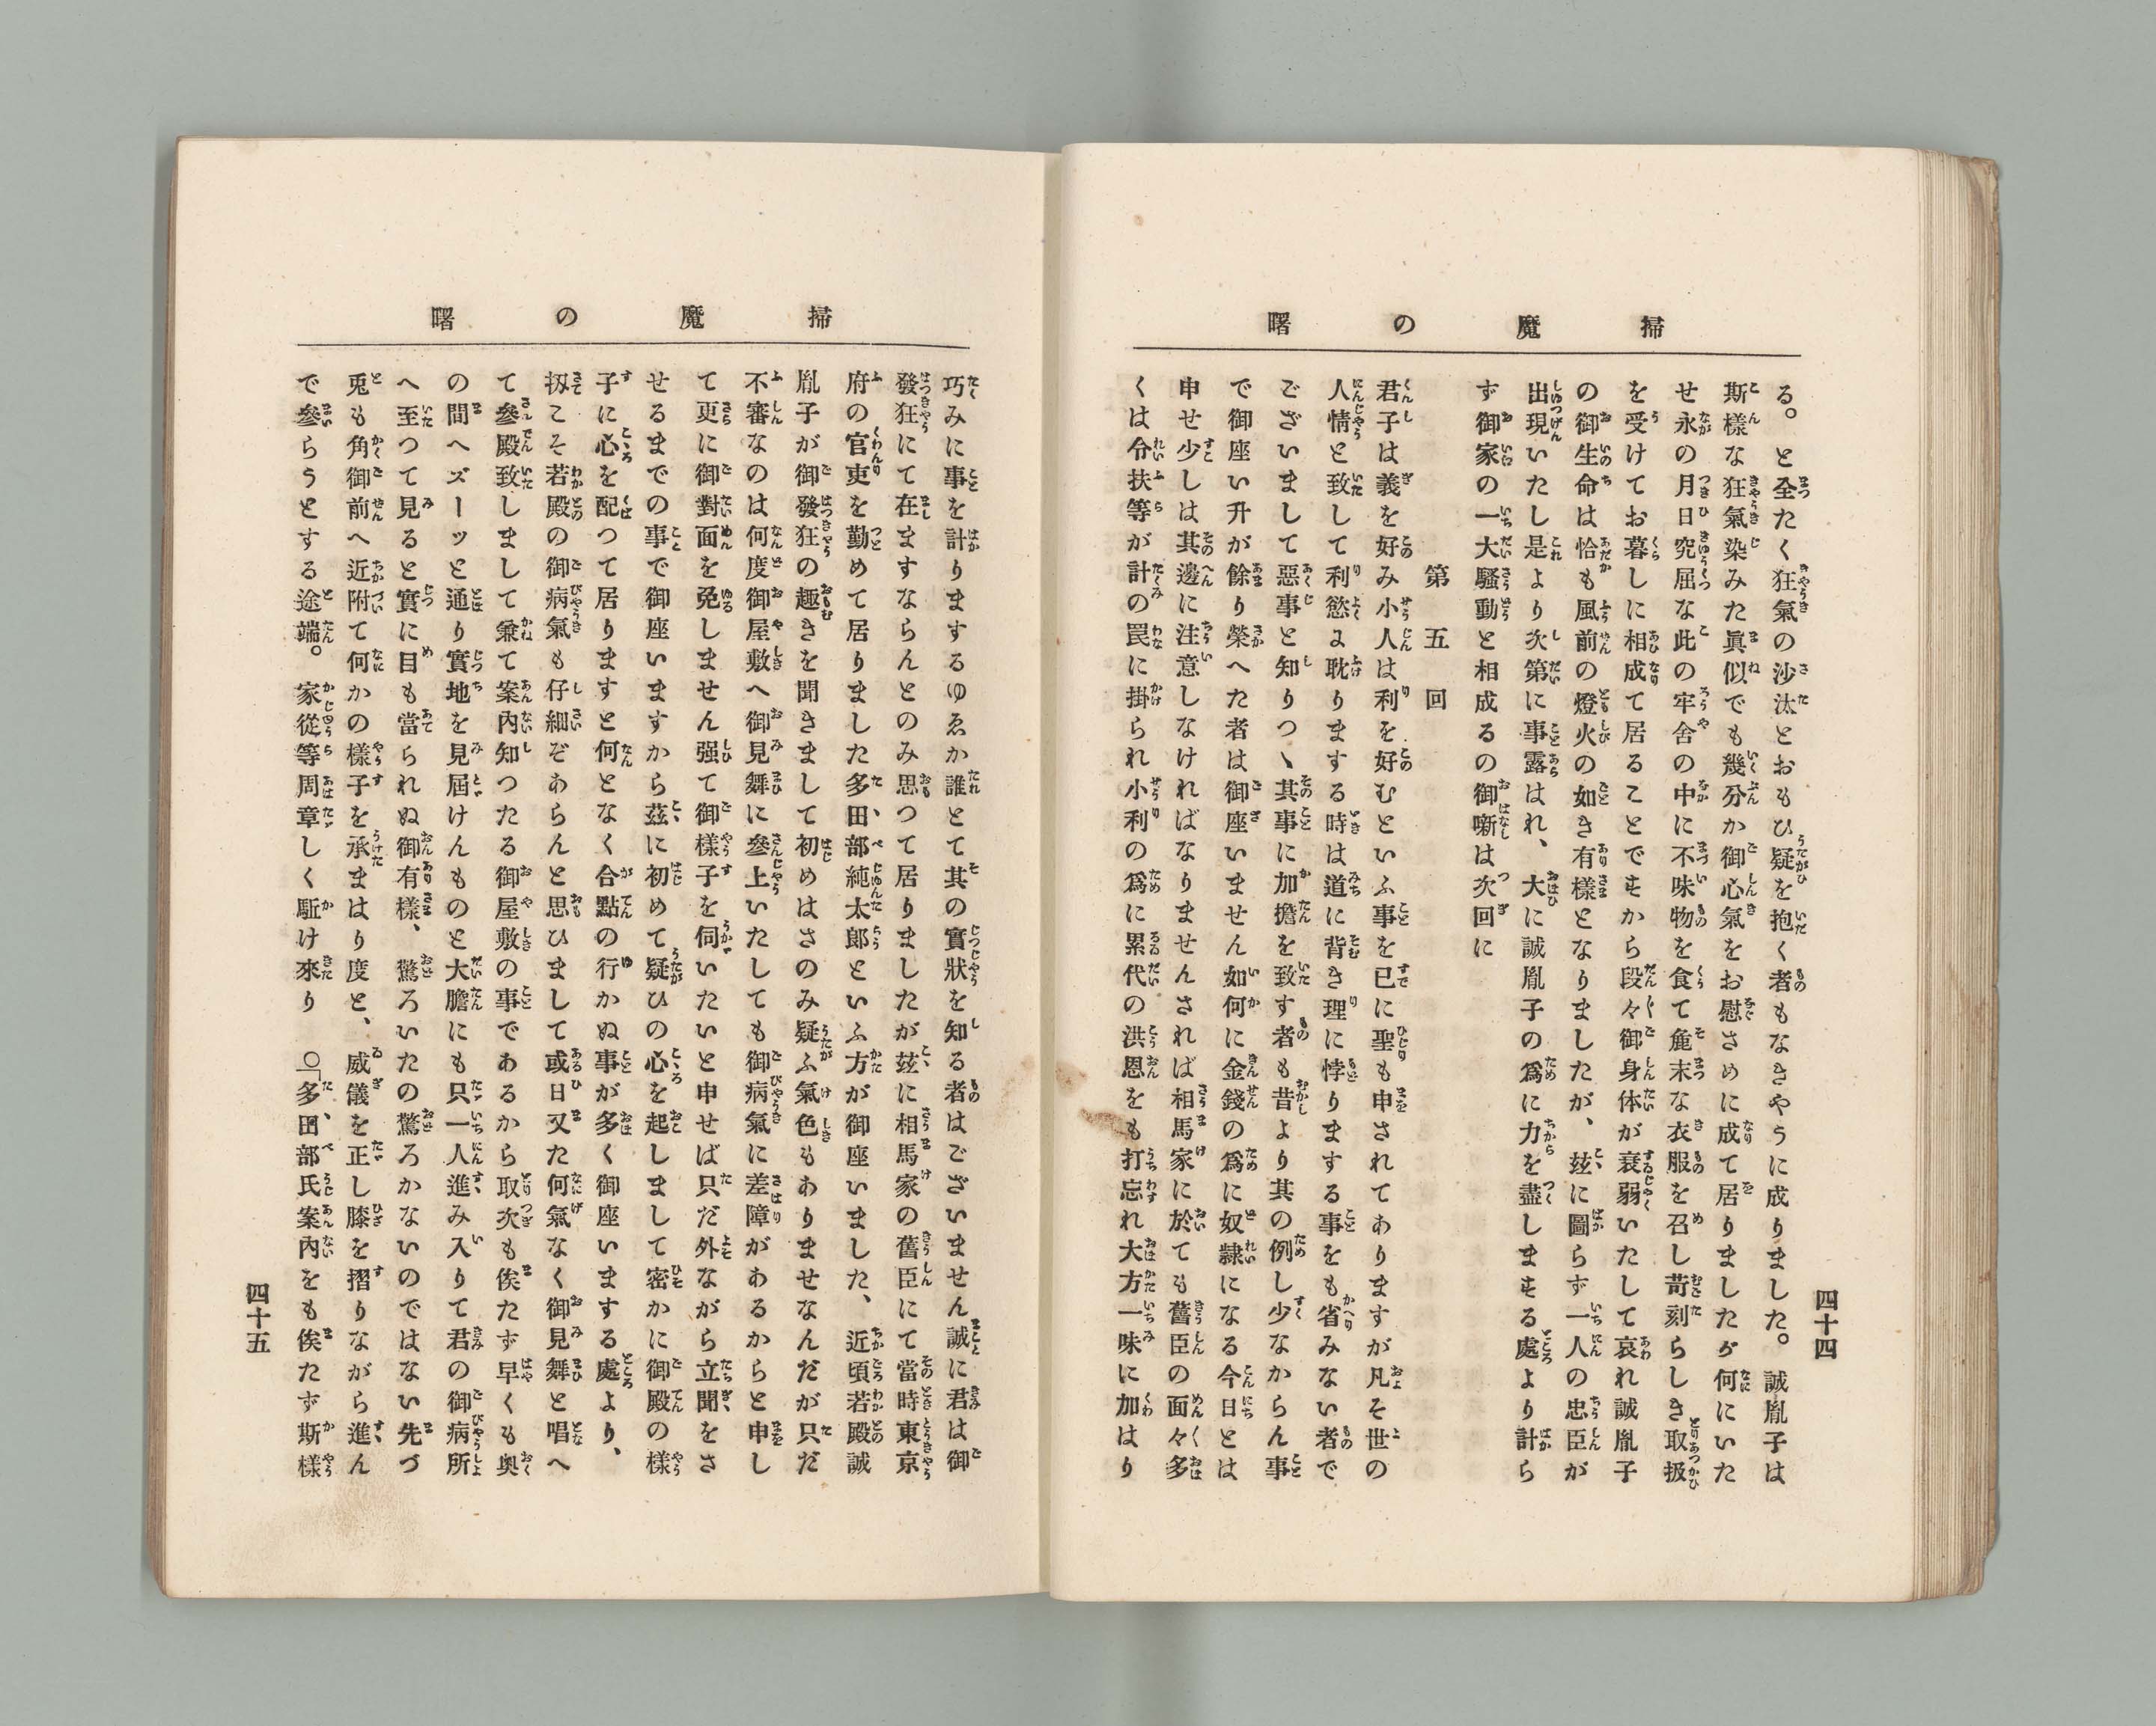 掃魔の曙
四十四
る。と全たく狂氣の沙汰とおもひ疑を抱く者もなきやうに成りました。誠胤子は
斯樣な狂氣染みた眞似でも幾分か御心氣をお慰さめに成て居りましたが何にいた
せ永の月日究屈な此の牢舍の中に不味物を食て麁末な衣服を召し苛刻らしき取扱
を受けてお暮しに相成て居ることですから段々御身体が衰弱いたして哀れ誠胤子
の御生命は恰も風前の燈火の如き有樣となりましたが、玆に圖らず一人の忠臣が
出現いたし是より次第に事露はれ、大に誠胤子の爲に力を盡しまする處より計ら
ず御家の一大騷動と相成るの御噺は次回に
第五回
君子は義を好み小人は利を好むといふ事を已に聖も申されてありますが凡そ世の
人情と致して利慾に耽りまする時は道に背き理に悖りまする事をも省みない者で
ございまして惡事と知りつヽ其事に加擔を致す者も昔より其の例し少なからん事
で御座い升が餘り榮へた者は御座いません如何に金錢の爲に奴隷になる今日とは
申せ少しは其邊に注意しなければなりませんされば相馬家に於ても舊臣の面々多
くは令扶等が計の罠に掛られ小利の爲に累代の洪恩をも打忘れ大方一味に加はり
掃魔の曙
巧みに事を計りまするゆゑか誰とて其の實狀を知る者はございません誠に君は御
發狂にて在ますならんとのみ思つて居りましたが玆に相馬家の舊臣にて當時東京
府の官吏を勤めて居りました多田部純太郎といふ方が御座いました、近頃若殿誠
胤子が御發狂の趣きを聞きまして初めはさのみ疑ふ氣色もありませなんだが只だ
不審なのは何度御屋敷へ御見舞に參上いたしても御病氣に差障があるからと申し
て更に御對面を免しません强て御樣子を伺いたいと申せば只だ外ながら立聞をさ
せるまでの事で御座いますから玆に初めて疑ひの心を起しまして密かに御殿の樣
子に心を配つて居りますと何となく合點の行かぬ事が多く御座いまする處より、
扨こそ若殿の御病氣も仔細ぞあらんと思ひまして或日又た何氣なく御見舞と唱へ
て參殿致しまして兼て案內知つたる御屋敷の事であるから取次も俟たず早くも奥
の間へズーッと通り實地を見屆けんものと大膽にも只一人進み入りて君の御病所
へ至つて見ると實に目も當られぬ御有樣、驚ろいたの驚ろかないのではない先づ
兎も角御前へ近附て何かの樣子を承まはり度と、威儀を正し膝を摺りながら進ん
で參らうとする途端。家從等周章しく駈け來り　○「多田部氏案內をも俟たず斯樣
四十五